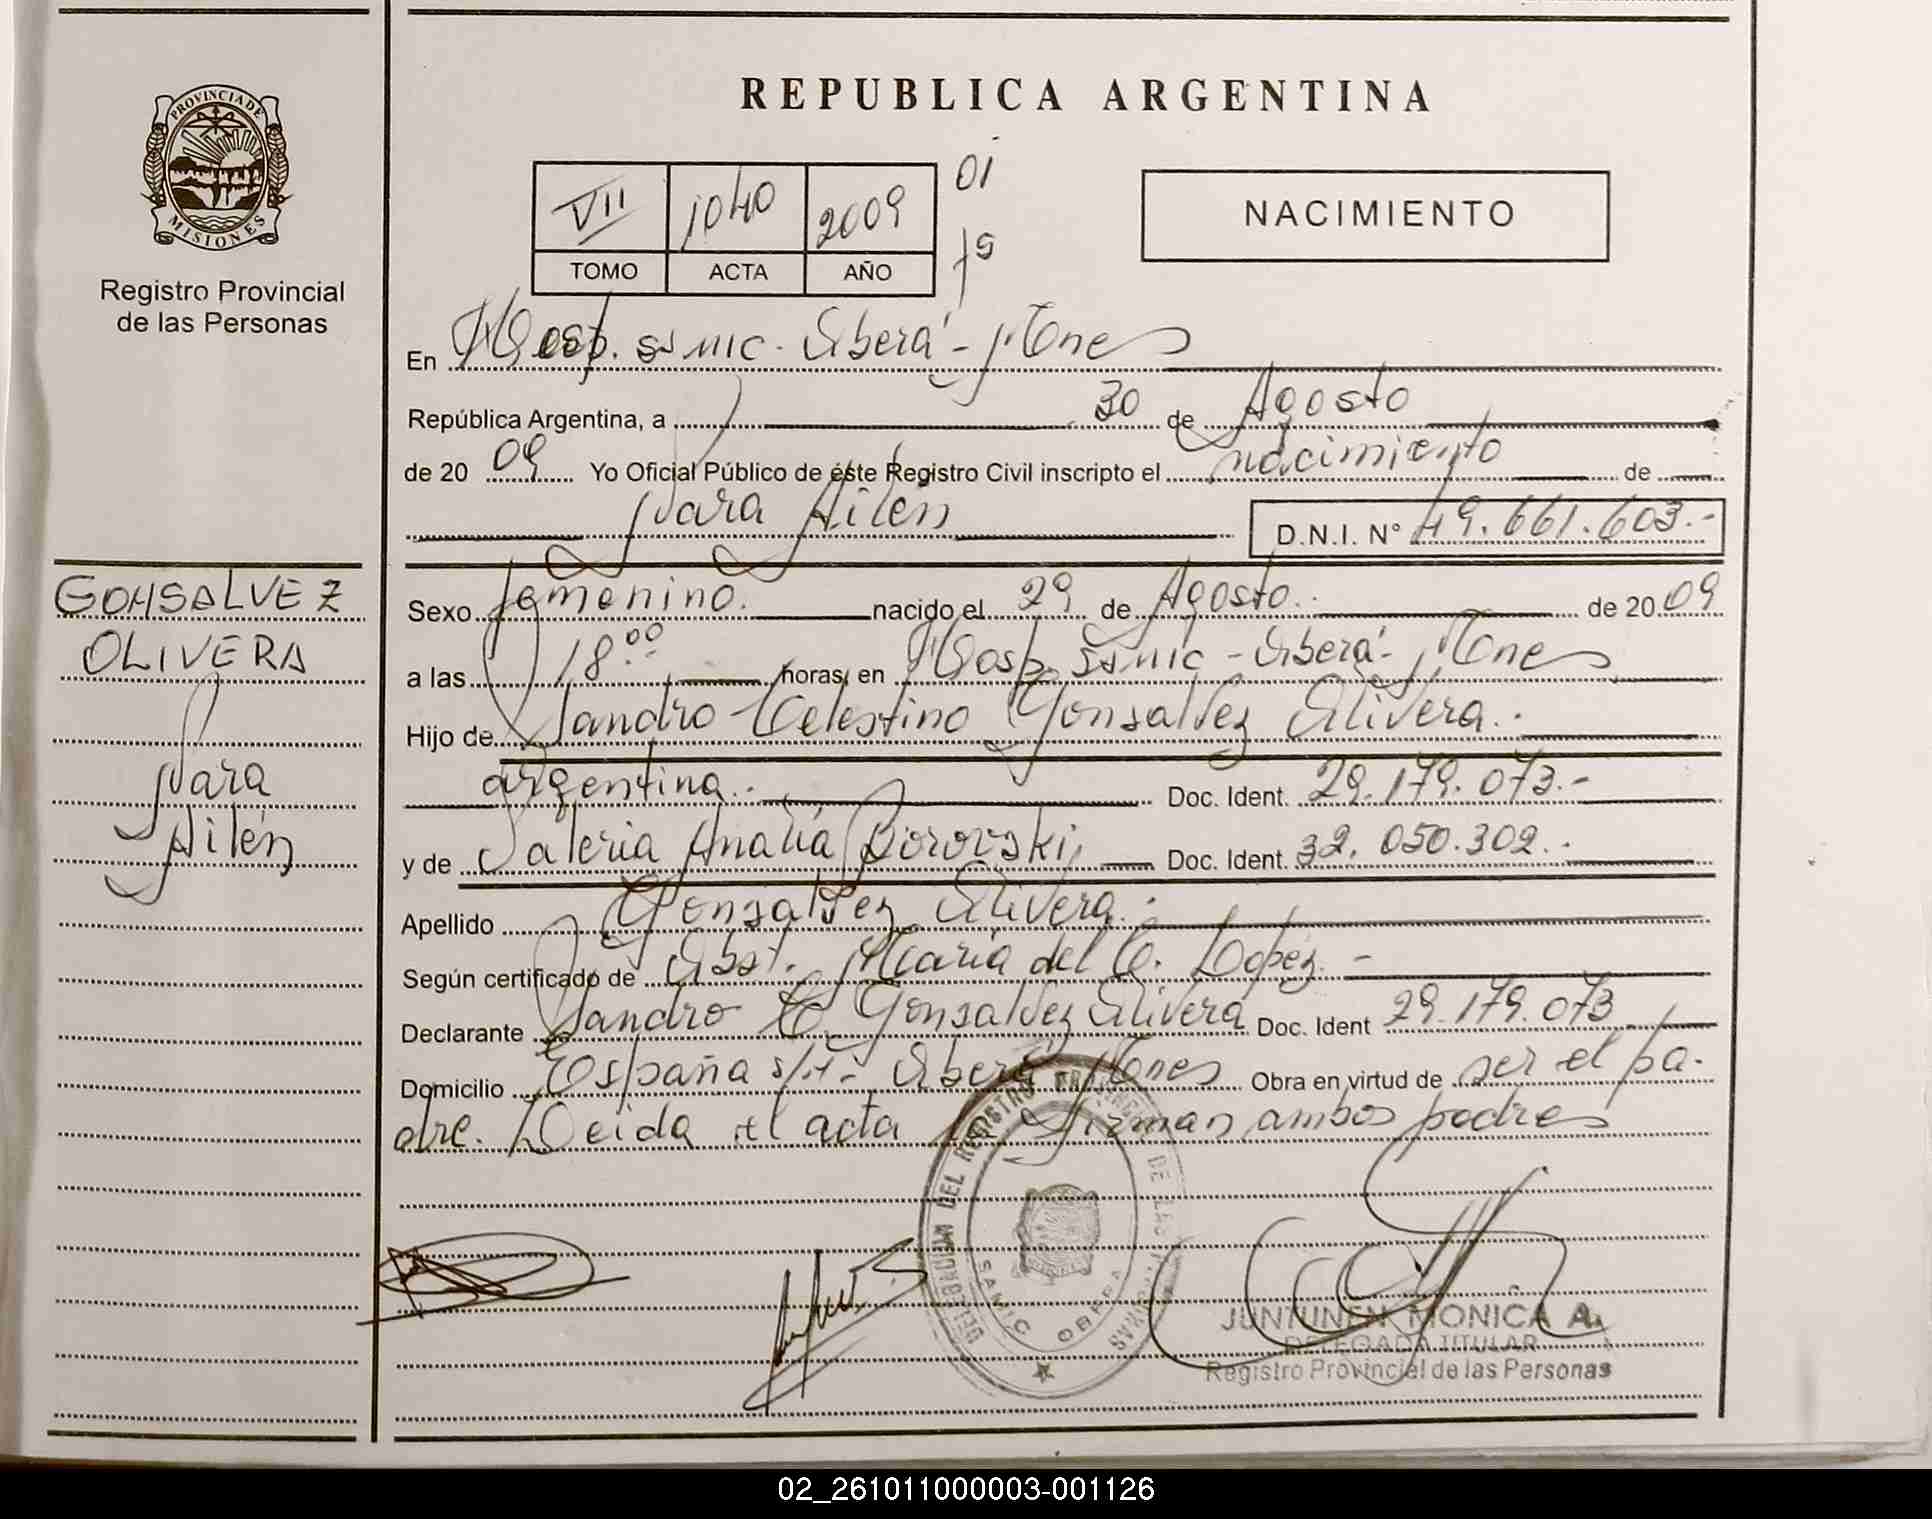 PROVINCIA DE
MISIONES
Registro Provincial
de las Personas
REPUBLICA ARGENTINA
VII 1040 2009 01
TOMO ACTA AÑO
NACIMIENTO
En Hosp. SS MIC - Oberá - Mnes
República Argentina, a 30 de Agosto
de 20 09 Yo Oficial Público de éste Registro Civil inscripto el nacimiento de
Yara Ailén D.N.I. Nº 49.661.603.-
GONSALVEZ
OLIVERA
Yara
Ailén
Sexo femenino. nacido el 29 de Agosto. de 20 09
a las 18:00 horas, en Hosp. SS MIC - Oberá - Mnes
Hijo de Sandro Celestino Gonsalvez Olivera.-
argentina.- Doc. Ident. 29.179.073.-
y de Valeria Analia Borovski, Doc. Ident. 32.050.302.-
Apellido Gonsalvez Olivera.-
Según certificado de Obst. Maria del C. Lopez.-
Declarante Sandro C. Gonsalvez Olivera Doc. Ident 29.179.073
Domicilio España s/n - Oberá Mnes Obra en virtud de ser el pa-
dre. Leida el acta la firman ambos padres
DELEGACION DEL REGISTRO PROVINCIAL DE LAS PERSONAS
SAMIC OBERA
JUNTUNEN MONICA A.
DELEGADA TITULAR
Registro Provincial de las Personas
02_261011000003-001126